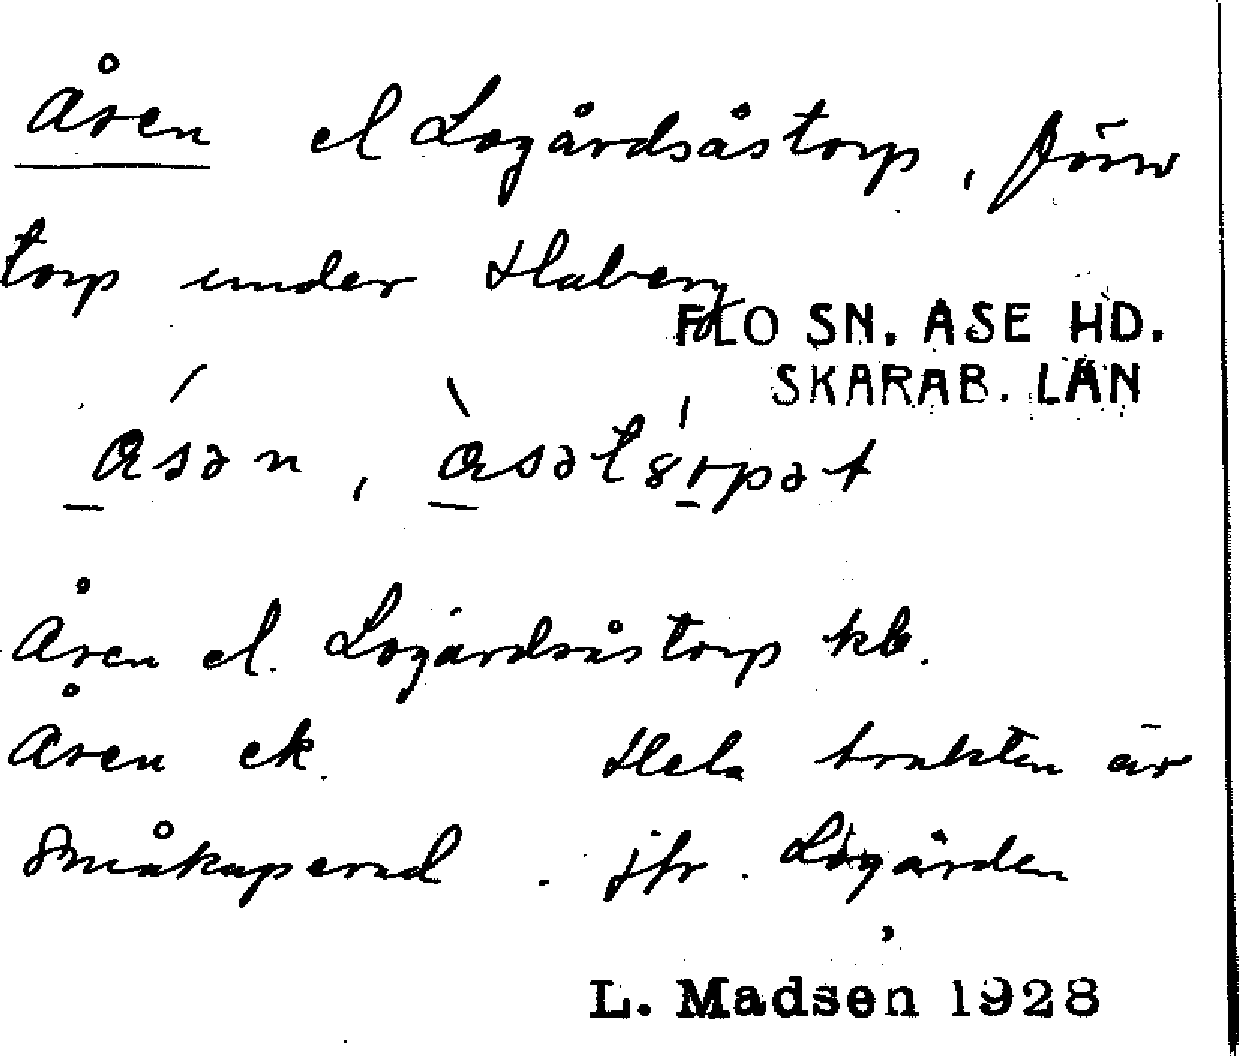 Åsen el Logårdsåstorp, förr
torp under Haberg
FLO SN. ASE HD.
SKARAB. LÄN
åsən, àsətórpət
Åsen el. Logårdsåstorp kb.
Åsen ek. Hela trakten är
småkuperad. jfr. Logården
L. Madsen 1928